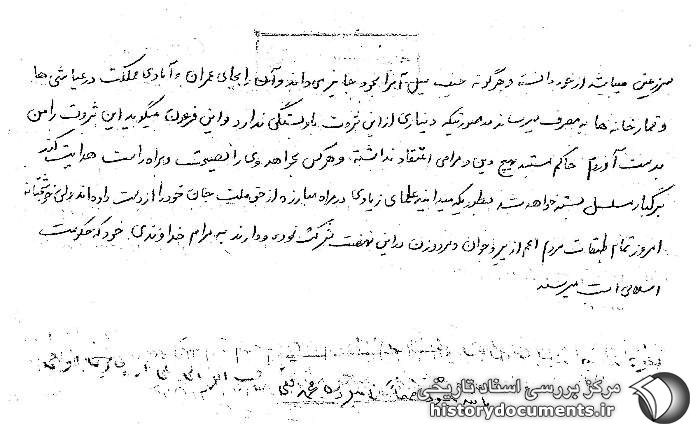 سرزمین میباشد از خود دانسته و هرگونه حیف و میل آنرا بخود جایز می‌داند و آن را بجای عمران و آبادی مملکت در عیاشی‌ها
و قمارخانه‌ها به مصرف میرساند بصورتیکه دنیاری از این ثروت با و بستگی ندارد و این فرعون میگوید این ثروت را من
بدست آوردم حاکم مستبد بهیچ دین و مرامی اعتقاد نداشته و هرکس بخواهد وی را نصیحت و براه راست هدایت کند
برگبار مسلسل بسته خواهد شد بطوریکه میدانید علمای زیادی در راه مبارزه از حق ملت جان خود را از دست داده‌اند ولی خوشبختانه
امروز تمام طبقات مردم اعم از پیر و جوان و مرد و زن در این نهضت شرکت نموده و دارند به مرام خداوندی خود که حکومت
اسلامی است میرسند
مرکز بررسی اسناد تاریخی
historydocuments.ir